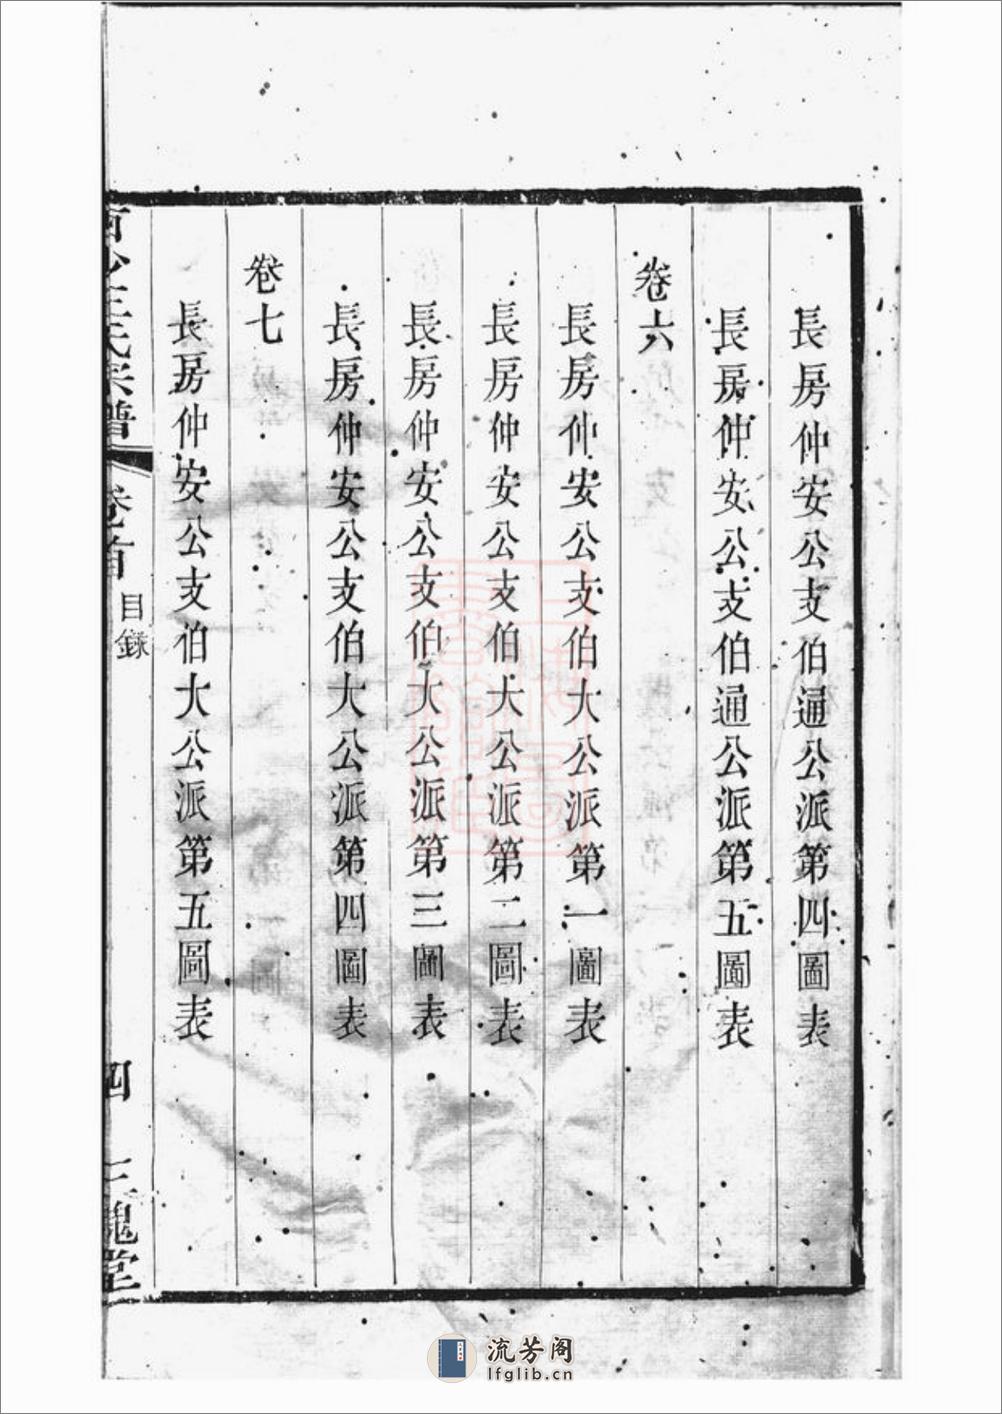 長房仲安公支伯通公派第四圖表
長房仲安公支伯通公派第五圖表
卷六
長房仲安公支伯大公派第一圖表
長房仲安公支伯大公派第二圖表
長房仲安公支伯大公派第三圖表
長房仲安公支伯大公派第四圖表
卷七
長房仲安公支伯大公派第五圖表
王氏宗譜
卷首
目錄
四
三槐堂
流芳阁
lfglib.cn